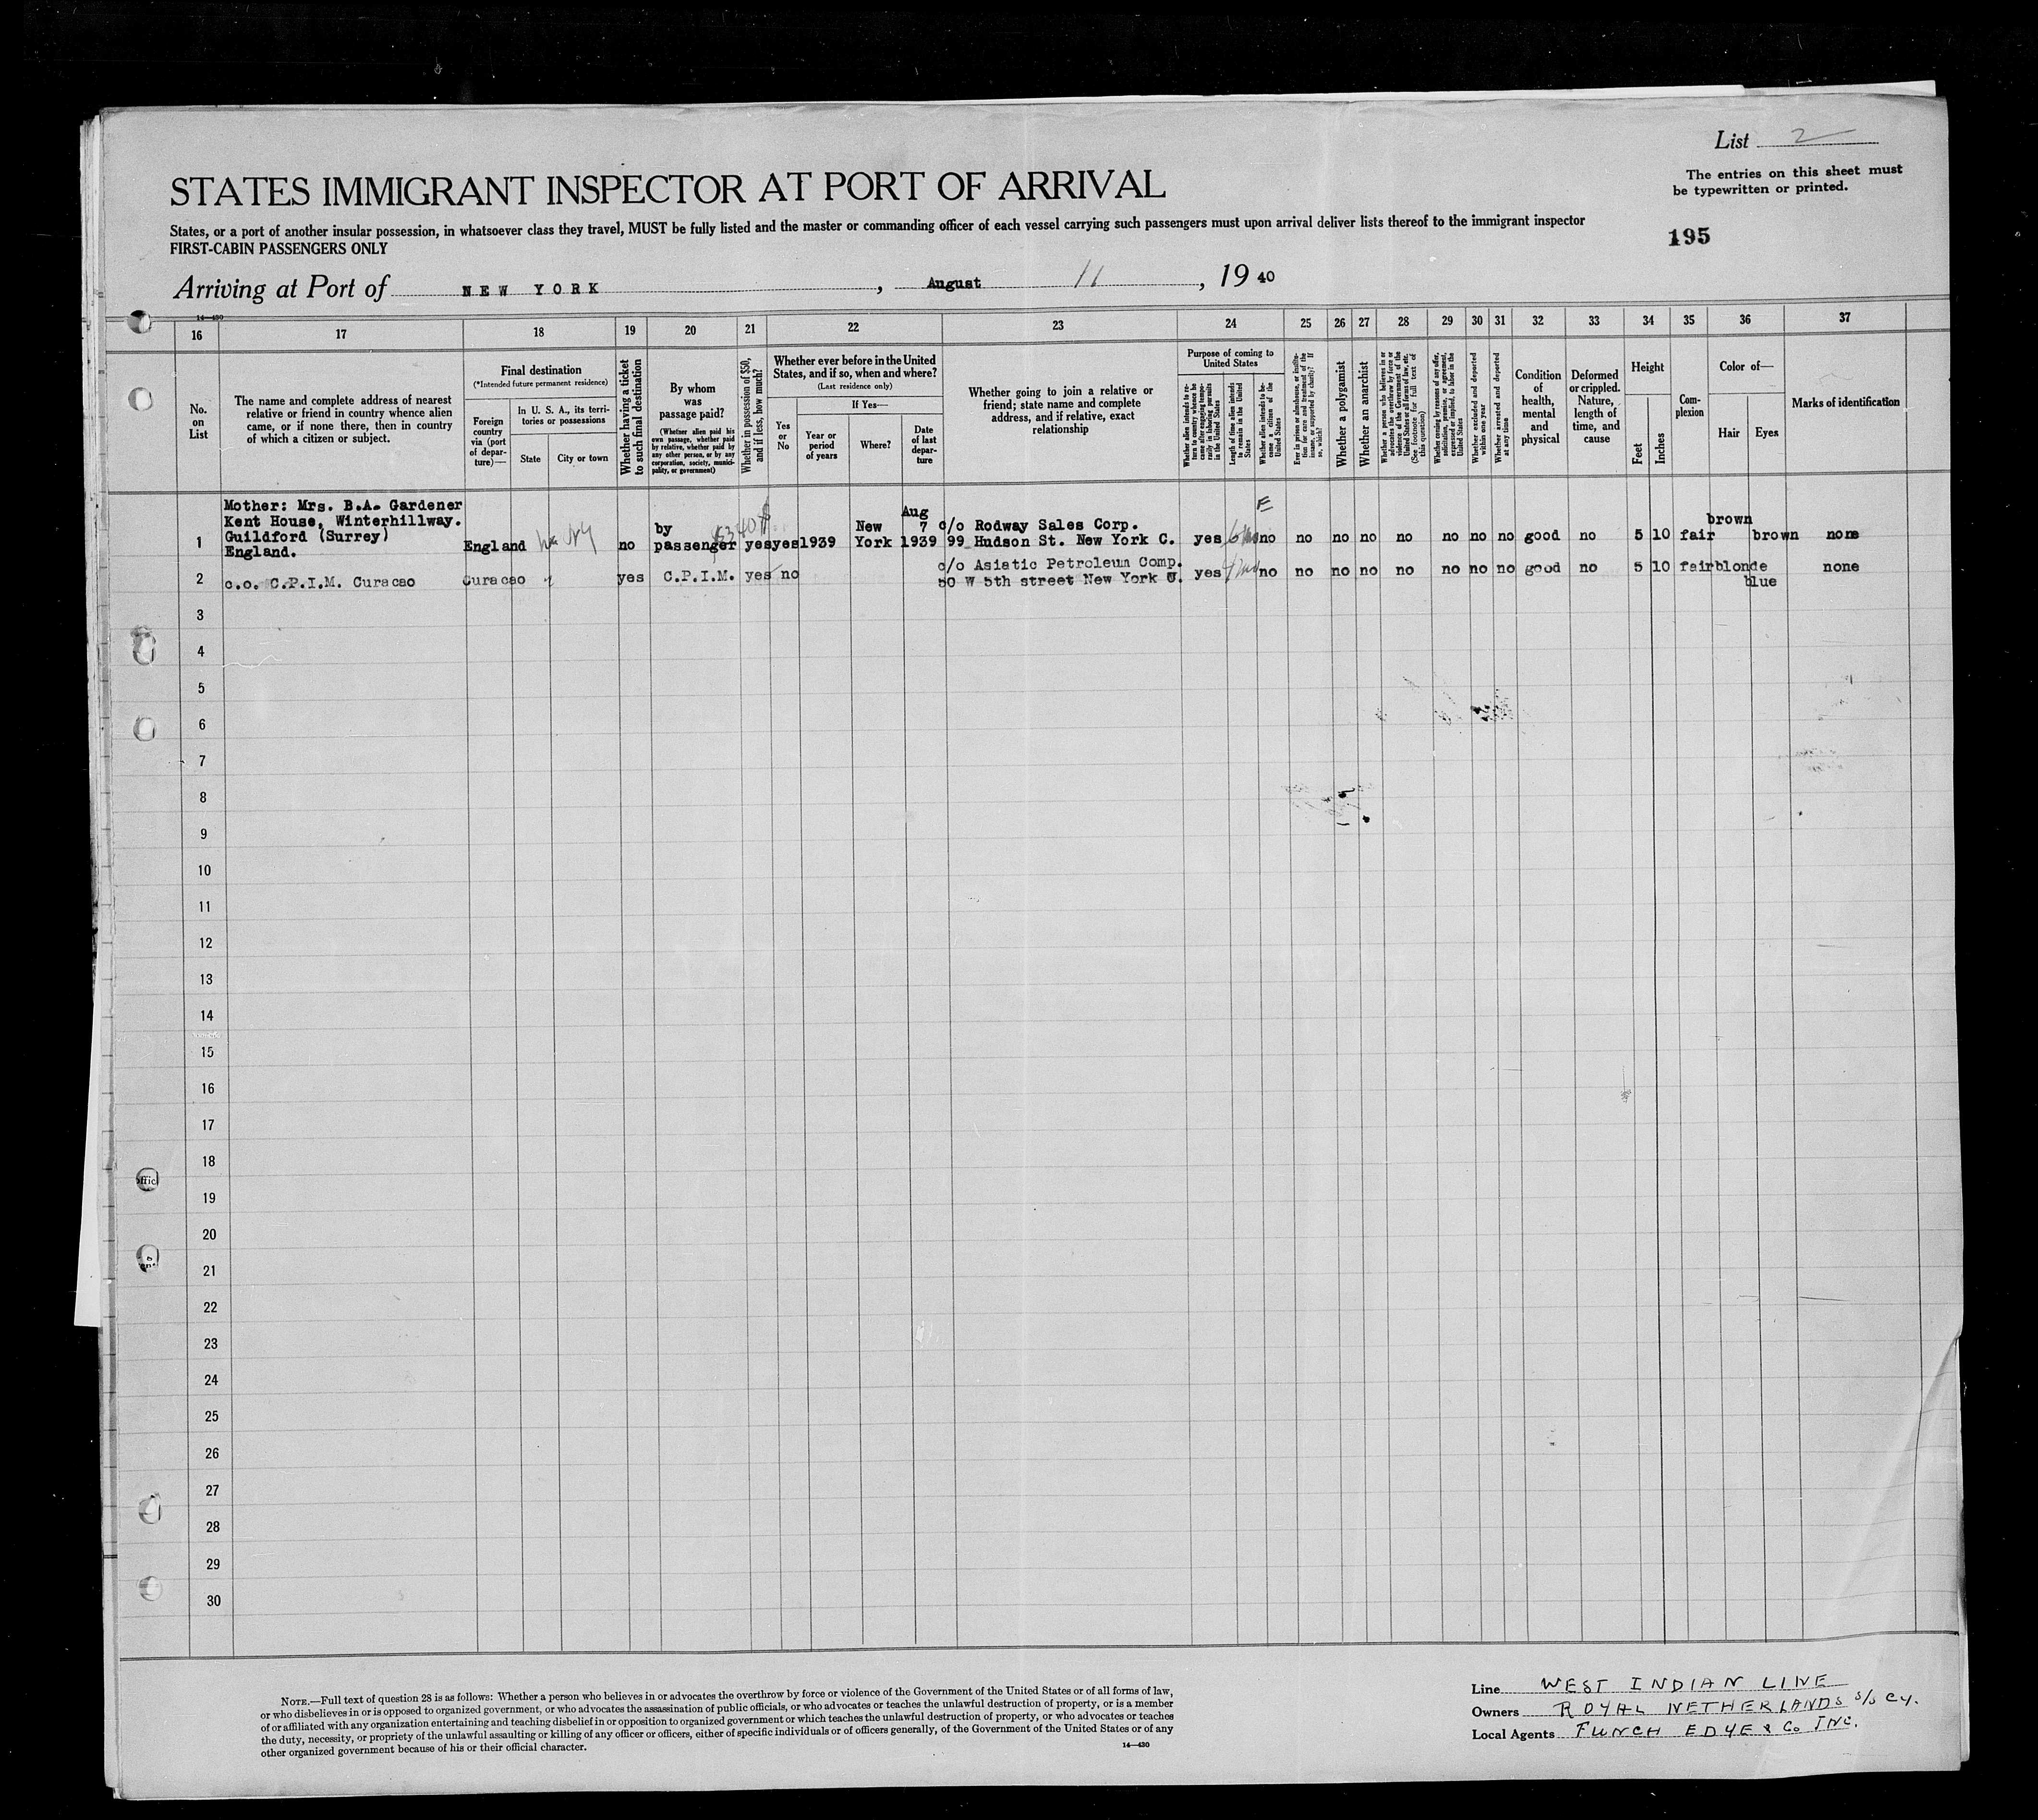 List 2
The entries on this sheet must
be typewritten or printed.
STATES IMMIGRANT INSPECTOR AT PORT OF ARRIVAL
States, or a port of another insular possession, in whatsoever class they travel, MUST be fully listed and the master or commanding officer of each vessel carrying such passengers must upon arrival deliver lists thereof to the immigrant inspector
FIRST-CABIN PASSENGERS ONLY
195
Arriving at Port of NEW YORK, August 11, 1940
14—430
16 17 18 19 20 21 22 23 24 25 26 27 28 29 30 31 32 33 34 35 36 37
No.
on
List
The name and complete address of nearest
relative or friend in country whence alien
came, or if none there, then in country
of which a citizen or subject.
Final destination
(*Intended future permanent residence)
Foreign
country
via (port
of depar-
ture)—
In U. S. A., its terri-
tories or possessions
State
City or town
Whether having a ticket
to such final destination
By whom
was
passage paid?
(Whether alien paid his
own passage, whether paid
by relative, whether paid by
any other person, or by any
corporation, society, munici-
pality, or government)
Whether in possession of $50,
and if less, how much?
Whether ever before in the United
States, and if so, when and where?
(Last residence only)
Yes
or
No
If Yes—
Year or
period
of years
Where?
Date
of last
depar-
ture
Whether going to join a relative or
friend; state name and complete
address, and if relative, exact
relationship
Purpose of coming to
United States
Whether alien intends to re-
turn to country whence he
came after engaging tempo-
rarily in laboring pursuits
in the United States
Length of time alien intends
to remain in the United
States
Whether alien intends to be-
come a citizen of the
United States
Ever in prison or almshouse, or institu-
tion for care and treatment of the
insane, or supported by charity? If
so, which?
Whether a polygamist
Whether an anarchist
Whether a person who believes in or
advocates the overthrow by force or
violence of the Government of the
United States or all forms of law, etc.
(See footnote for full text of
this question)
Whether coming by reasons of any offer,
solicitation, promise, or agreement,
expressed or implied, to labor in the
United States
Whether excluded and deported
within one year
Whether arrested and deported
at any time
Condition
of
health,
mental
and
physical
Deformed
or crippled.
Nature,
length of
time, and
cause
Height
Feet
Inches
Com-
plexion
Color of—
Hair
Eyes
Marks of identification
Mother: Mrs. B.A. Gardener
Kent House, Winterhillway.
Guildford (Surrey)
England.
1 England no by passenger yes yes 1939 New York Aug 7 1939 c/o Rodway Sales Corp.
99 Hudson St. New York C. yes no no no no no no no no good no 5 10 fair brown brown none
2 c.o. C.P.I.M. Curacao Curacao yes C.P.I.M. yes no c/o Asiatic Petroleum Comp.
50 W 5th street New York yes no no no no no no no no good no 5 10 fair blonde blue none
3
4
5
6
7
8
9
10
11
12
13
14
15
16
17
18
19
20
21
22
23
24
25
26
27
28
29
30
NOTE.—Full text of question 28 is as follows: Whether a person who believes in or advocates the overthrow by force or violence of the Government of the United States or of all forms of law,
or who disbelieves in or is opposed to organized government, or who advocates the assassination of public officials, or who advocates or teaches the unlawful destruction of property, or is a member
of or affiliated with any organization entertaining and teaching disbelief in or opposition to organized government or which teaches the unlawful destruction of property, or who advocates or teaches
the duty, necessity, or propriety of the unlawful assaulting or killing of any officer or officers, either of specific individuals or of officers generally, of the Government of the United States or of any
other organized government because of his or their official character.
14—430
Line WEST INDIAN LINE
Owners ROYAL NETHERLANDS S/S CY.
Local Agents FUNCH EDYE & Co INC.